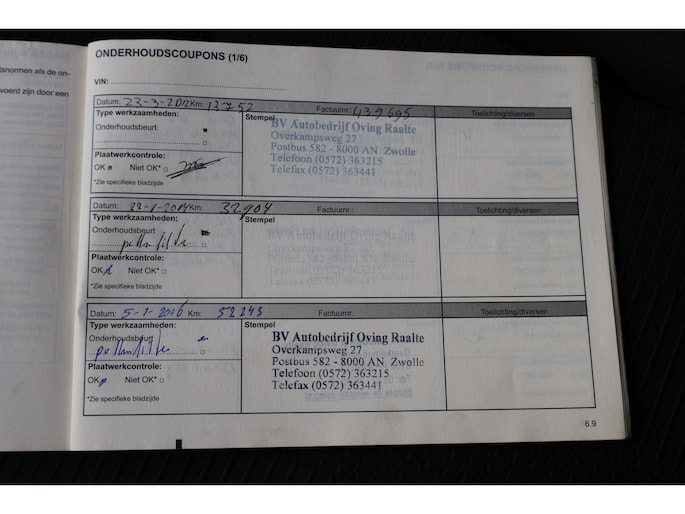 ONDERHOUDSCOUPONS (1/6)
tsnormen als de on-
voerd zijn door een
VIN:
Datum: 23-3-2012 Km: 13752 Factuurnr.: 439695 Toelichting/diversen
Type werkzaamheden:
Onderhoudsbeurt
Stempel
BV Autobedrijf Oving Raalte
Overkampsweg 27
Postbus 582 - 8000 AN Zwolle
Telefoon (0572) 363215
Telefax (0572) 363441
Plaatwerkcontrole:
OK Niet OK*
*Zie specifieke bladzijde
Datum: 22-1-2014 Km: 32904 Factuurnr.: Toelichting/diversen
Type werkzaamheden:
Onderhoudsbeurt
Stempel
BV Autobedrijf Oving Raalte
Overkampsweg 27
Postbus 582 - 8000 AN Zwolle
Telefoon (0572) 363215
Telefax (0572) 363441
Plaatwerkcontrole:
OK Niet OK*
*Zie specifieke bladzijde
Datum: 5-1-2016 Km: 52243 Factuurnr.: Toelichting/diversen
Type werkzaamheden:
Onderhoudsbeurt
Stempel
BV Autobedrijf Oving Raalte
Overkampsweg 27
Postbus 582 - 8000 AN Zwolle
Telefoon (0572) 363215
Telefax (0572) 363441
Plaatwerkcontrole:
OK Niet OK*
*Zie specifieke bladzijde
6.9